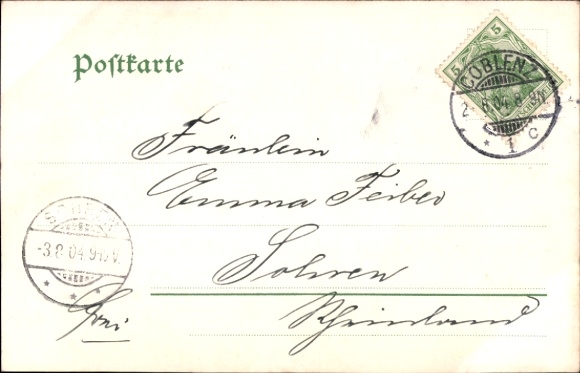 Postkarte
5 5
COBLENZ
2. 8.04. 8-9N
* 1 C
Fräulein
Emma Feiber
Sohren
-3.8.04.9-10V.
Rheinland